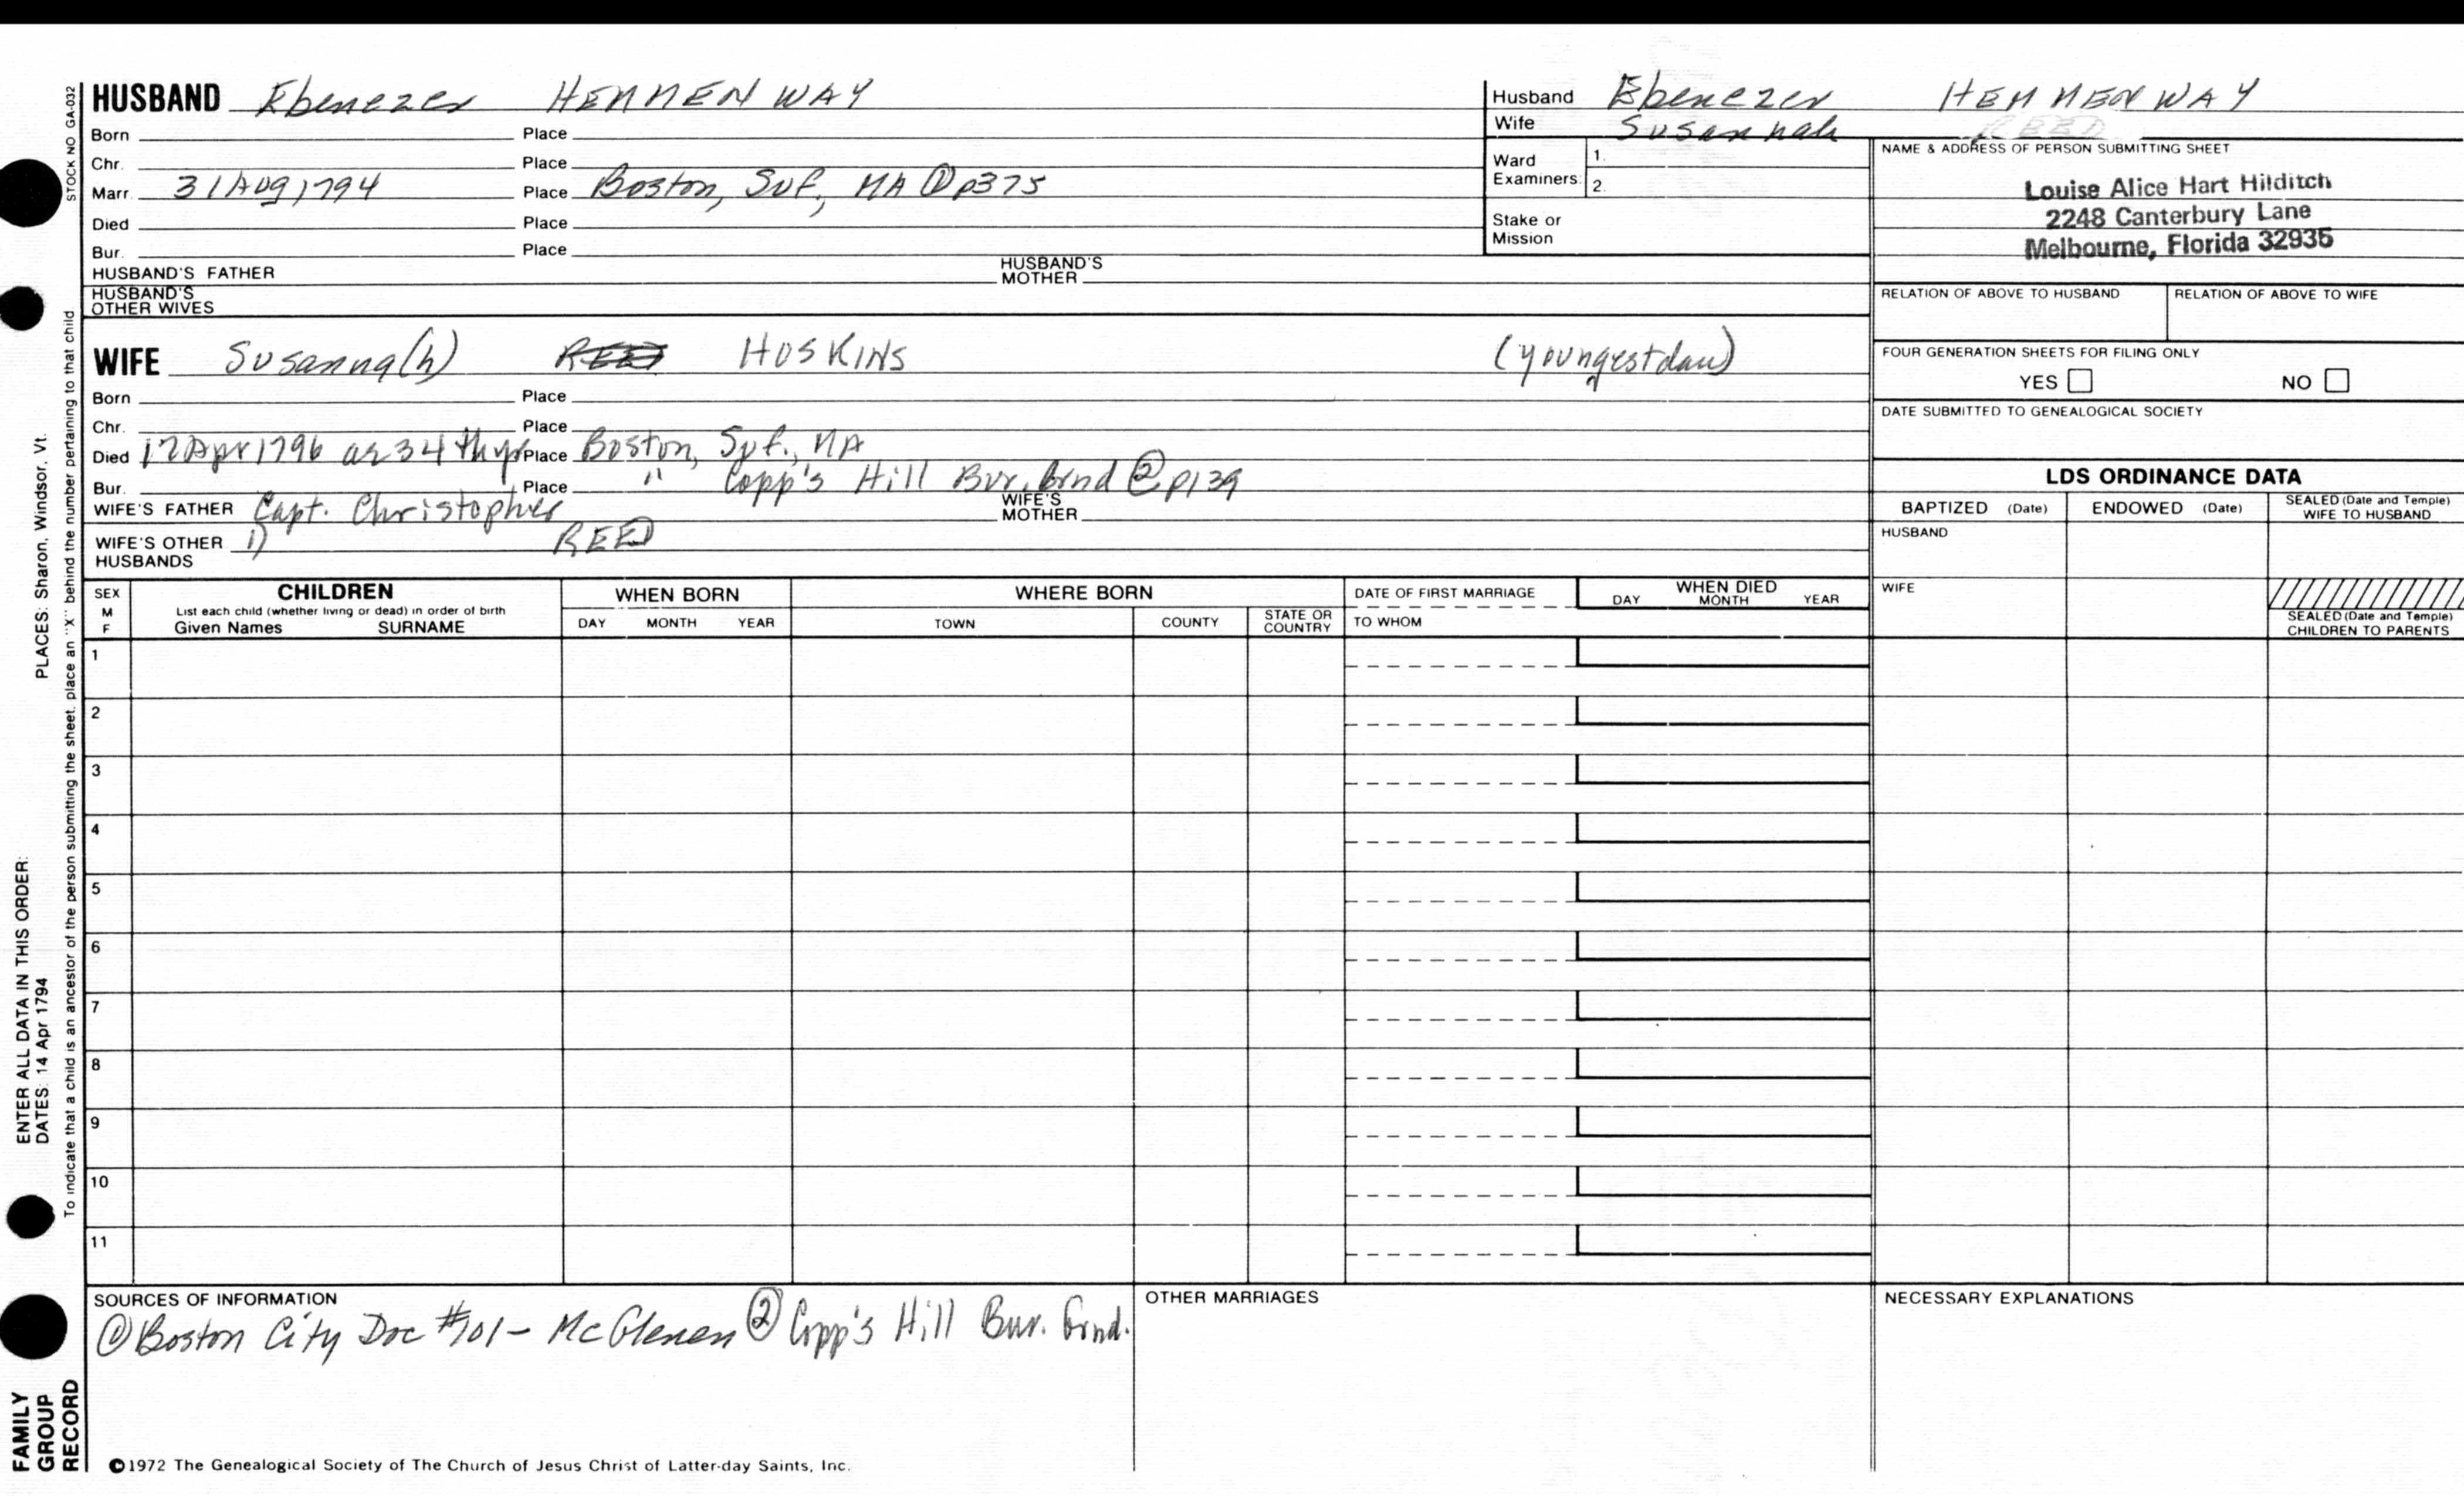 HUSBAND Ebenezer HEMMENWAY
Born Place
Chr. Place
Marr. 31 Aug 1794 Place Boston, Suf., MA ① p375
Died Place
Bur. Place
HUSBAND'S FATHER HUSBAND'S MOTHER
HUSBAND'S OTHER WIVES
WIFE Susanna(h) REED HOSKINS (youngest dau)
Born Place
Chr. Place
Died 17 Apr 1796 ae 34 thyr Place Boston, Suf., MA
Bur. Place " Copp's Hill Bur. Grnd ② p139
WIFE'S FATHER Capt. Christopher WIFE'S MOTHER
WIFE'S OTHER HUSBANDS 1) REED
Husband Ebenezer HEMMENWAY
Wife Susannah REED
Ward Examiners: 1.
2.
Stake or Mission
NAME & ADDRESS OF PERSON SUBMITTING SHEET
Louise Alice Hart Hilditch
2248 Canterbury Lane
Melbourne, Florida 32935
RELATION OF ABOVE TO HUSBAND RELATION OF ABOVE TO WIFE
FOUR GENERATION SHEETS FOR FILING ONLY
YES NO
DATE SUBMITTED TO GENEALOGICAL SOCIETY
LDS ORDINANCE DATA
BAPTIZED (Date) ENDOWED (Date) SEALED (Date and Temple) WIFE TO HUSBAND
HUSBAND
WIFE
SEALED (Date and Temple)
CHILDREN TO PARENTS
SEX M F CHILDREN WHEN BORN WHERE BORN DATE OF FIRST MARRIAGE WHEN DIED
List each child (whether living or dead) in order of birth
Given Names SURNAME DAY MONTH YEAR TOWN COUNTY STATE OR COUNTRY TO WHOM DAY MONTH YEAR
1
2
3
4
5
6
7
8
9
10
11
SOURCES OF INFORMATION OTHER MARRIAGES NECESSARY EXPLANATIONS
① Boston City Doc #101 - McGlenen ② Copp's Hill Bur. Grnd.
©1972 The Genealogical Society of The Church of Jesus Christ of Latter-day Saints, Inc.
STOCK NO GA-032
To indicate that a child is an ancestor of the person submitting the sheet, place an "X" behind the number pertaining to that child
ENTER ALL DATA IN THIS ORDER:
DATES: 14 Apr 1794 PLACES: Sharon, Windsor, Vt.
FAMILY
GROUP
RECORD